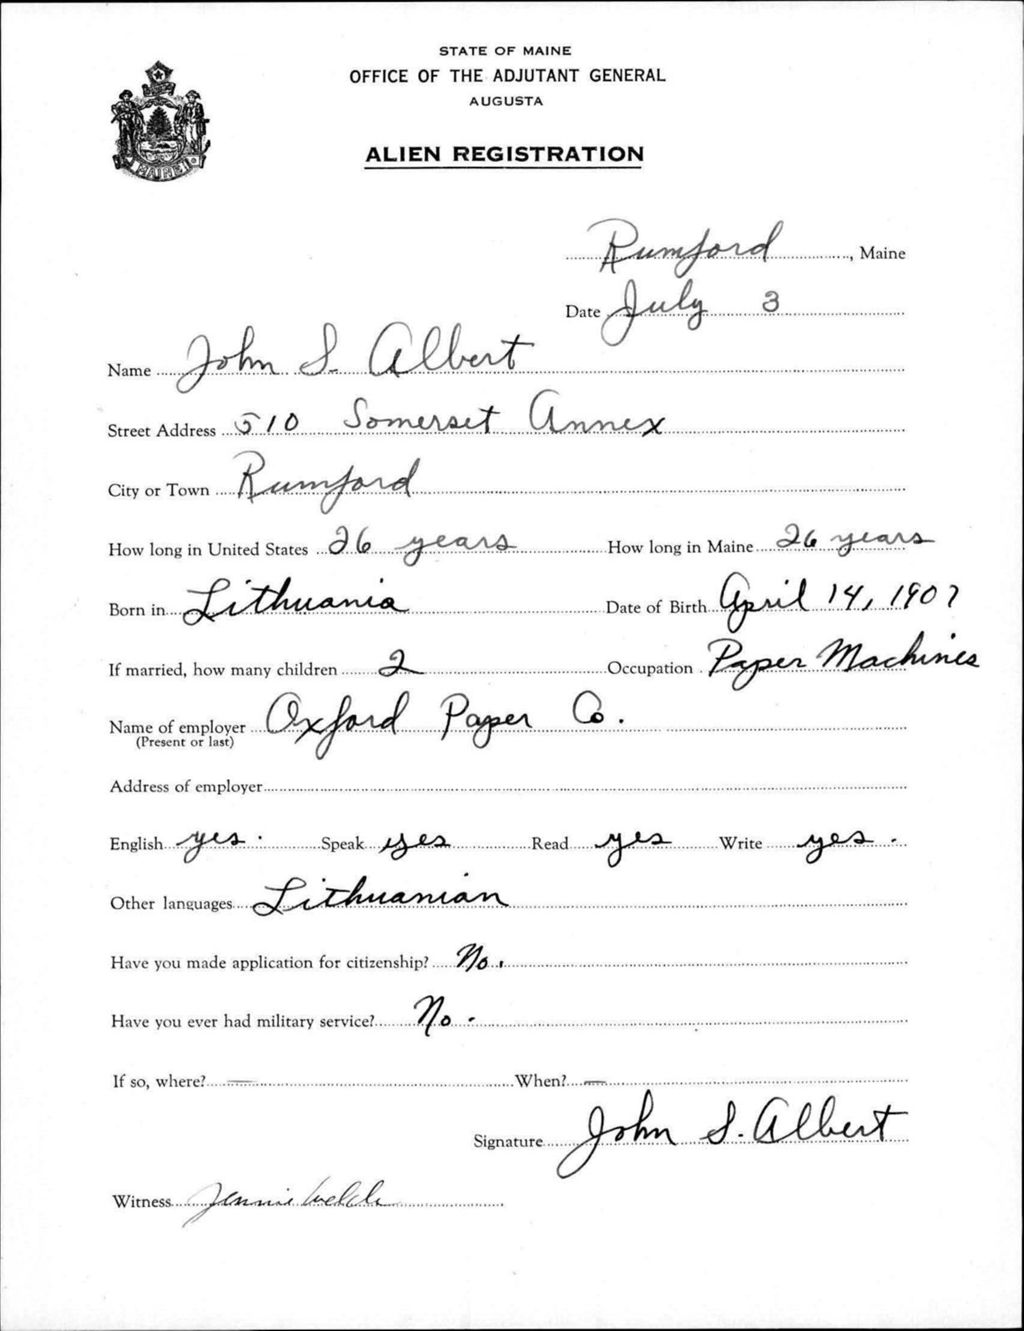 STATE OF MAINE
OFFICE OF THE ADJUTANT GENERAL
AUGUSTA
ALIEN REGISTRATION
MAINE
Rumford, Maine
Date July 3
Name John S. Albert
Street Address 510 Somerset Annex
City or Town Rumford
How long in United States 26 years How long in Maine 26 years
Born in Lithuania Date of Birth April 14, 1907
If married, how many children 2 Occupation Paper Machines
Name of employer Oxford Paper Co.
(Present or last)
Address of employer
English yes. Speak yes Read yes Write yes.
Other languages Lithuanian
Have you made application for citizenship? No.
Have you ever had military service? No.
If so, where? — When? —
Signature John S. Albert
Witness Jennie Welch